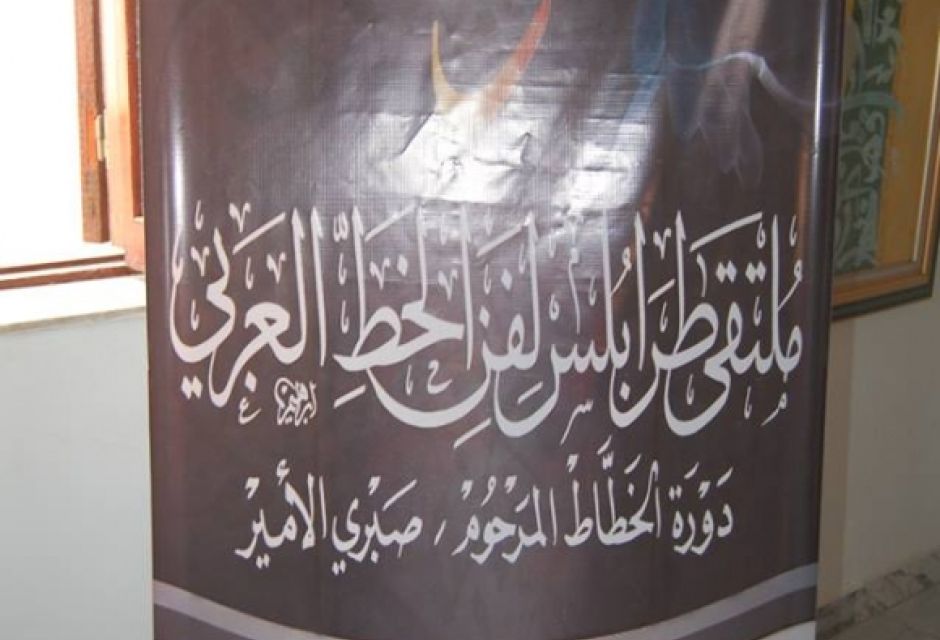 مُلتقى طرَابُلس لِفن الخطِّ العَرَبي
دَوْرَة الخَطَّاطْ المَرْحُومْ / صَبْرِي الأَمِيرْ